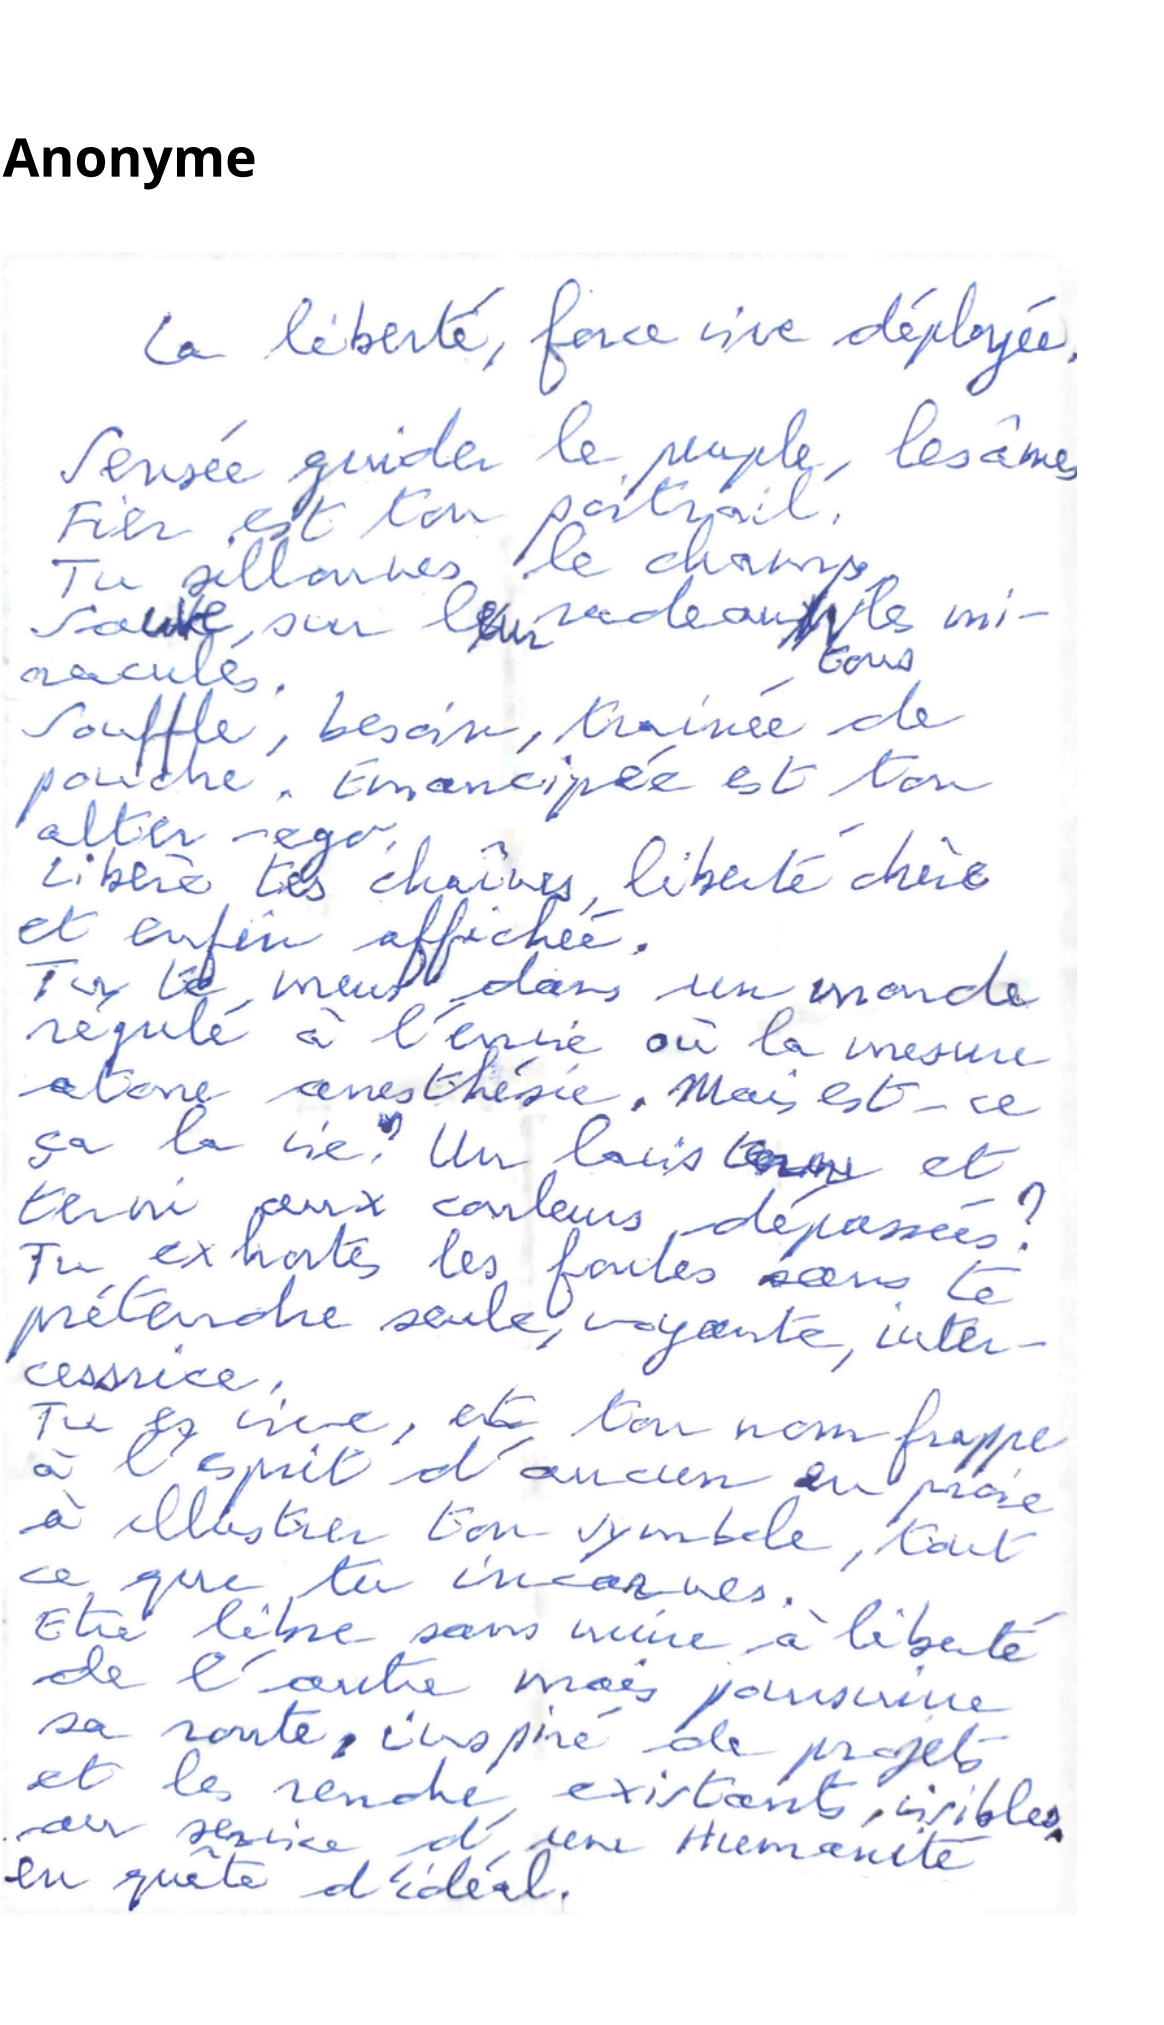 Anonyme
La liberté, force vive déployée.
Sensée guider le peuple, les âmes
Fier est ton portrait.
Tu sillonnes le champ,
Sauve, sur leur radeau, les mi-
tous
raculés.
Souffle, besoin, trainée de
poudre. Emancipée est ton
alter-ego.
Libère tes chaînes, liberté chère
et enfin affichée.
Tu te meus dans un monde
régulé à l'envie où la mesure
atone anesthésie. Mais est-ce
ça la vie? Un lavis terne et
terni aux couleurs dépassées?
Tu exhortes les foules sans te
prétendre seule, voyante, inter-
cessrice.
Tu es vive, et ton nom frappe
à l'esprit d'aucun en proie
à illustrer ton symbole, tout
ce que tu incarnes.
Etre libre sans nuire à liberté
de l'autre mais poursuivre
sa route, inspiré de projets
et les rendre existants, visibles,
au service d'une Humanité
en quête d'idéal.